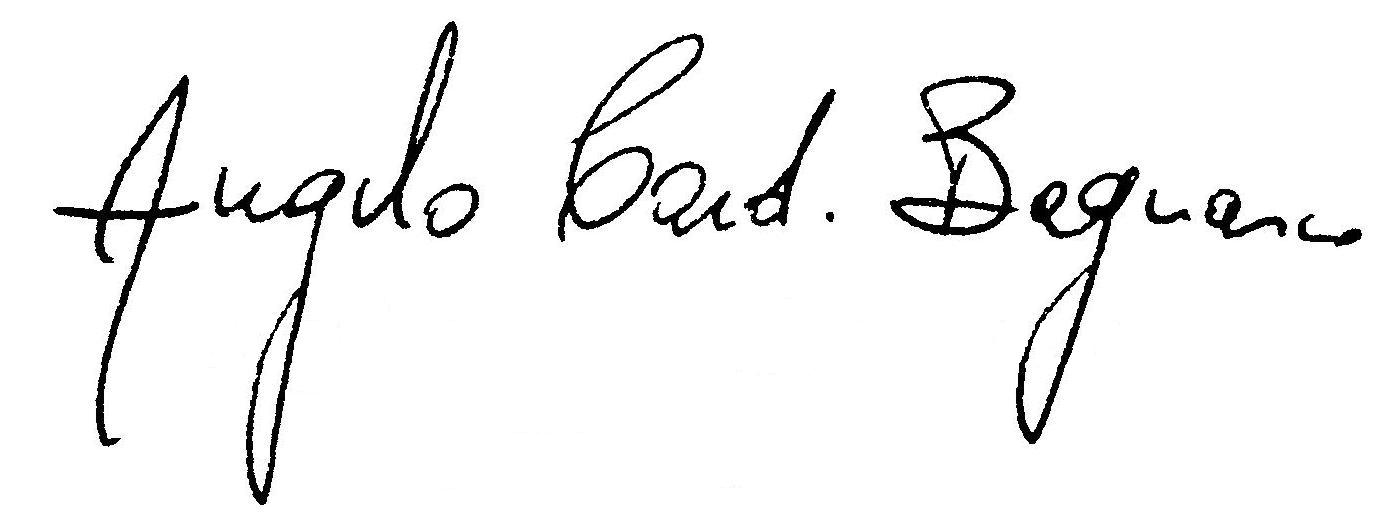 Angelo Card. Bagnasco